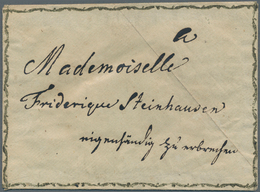 a
Mademoiselle
Friderique Steinhausen
eigenhändig zu erbrechen